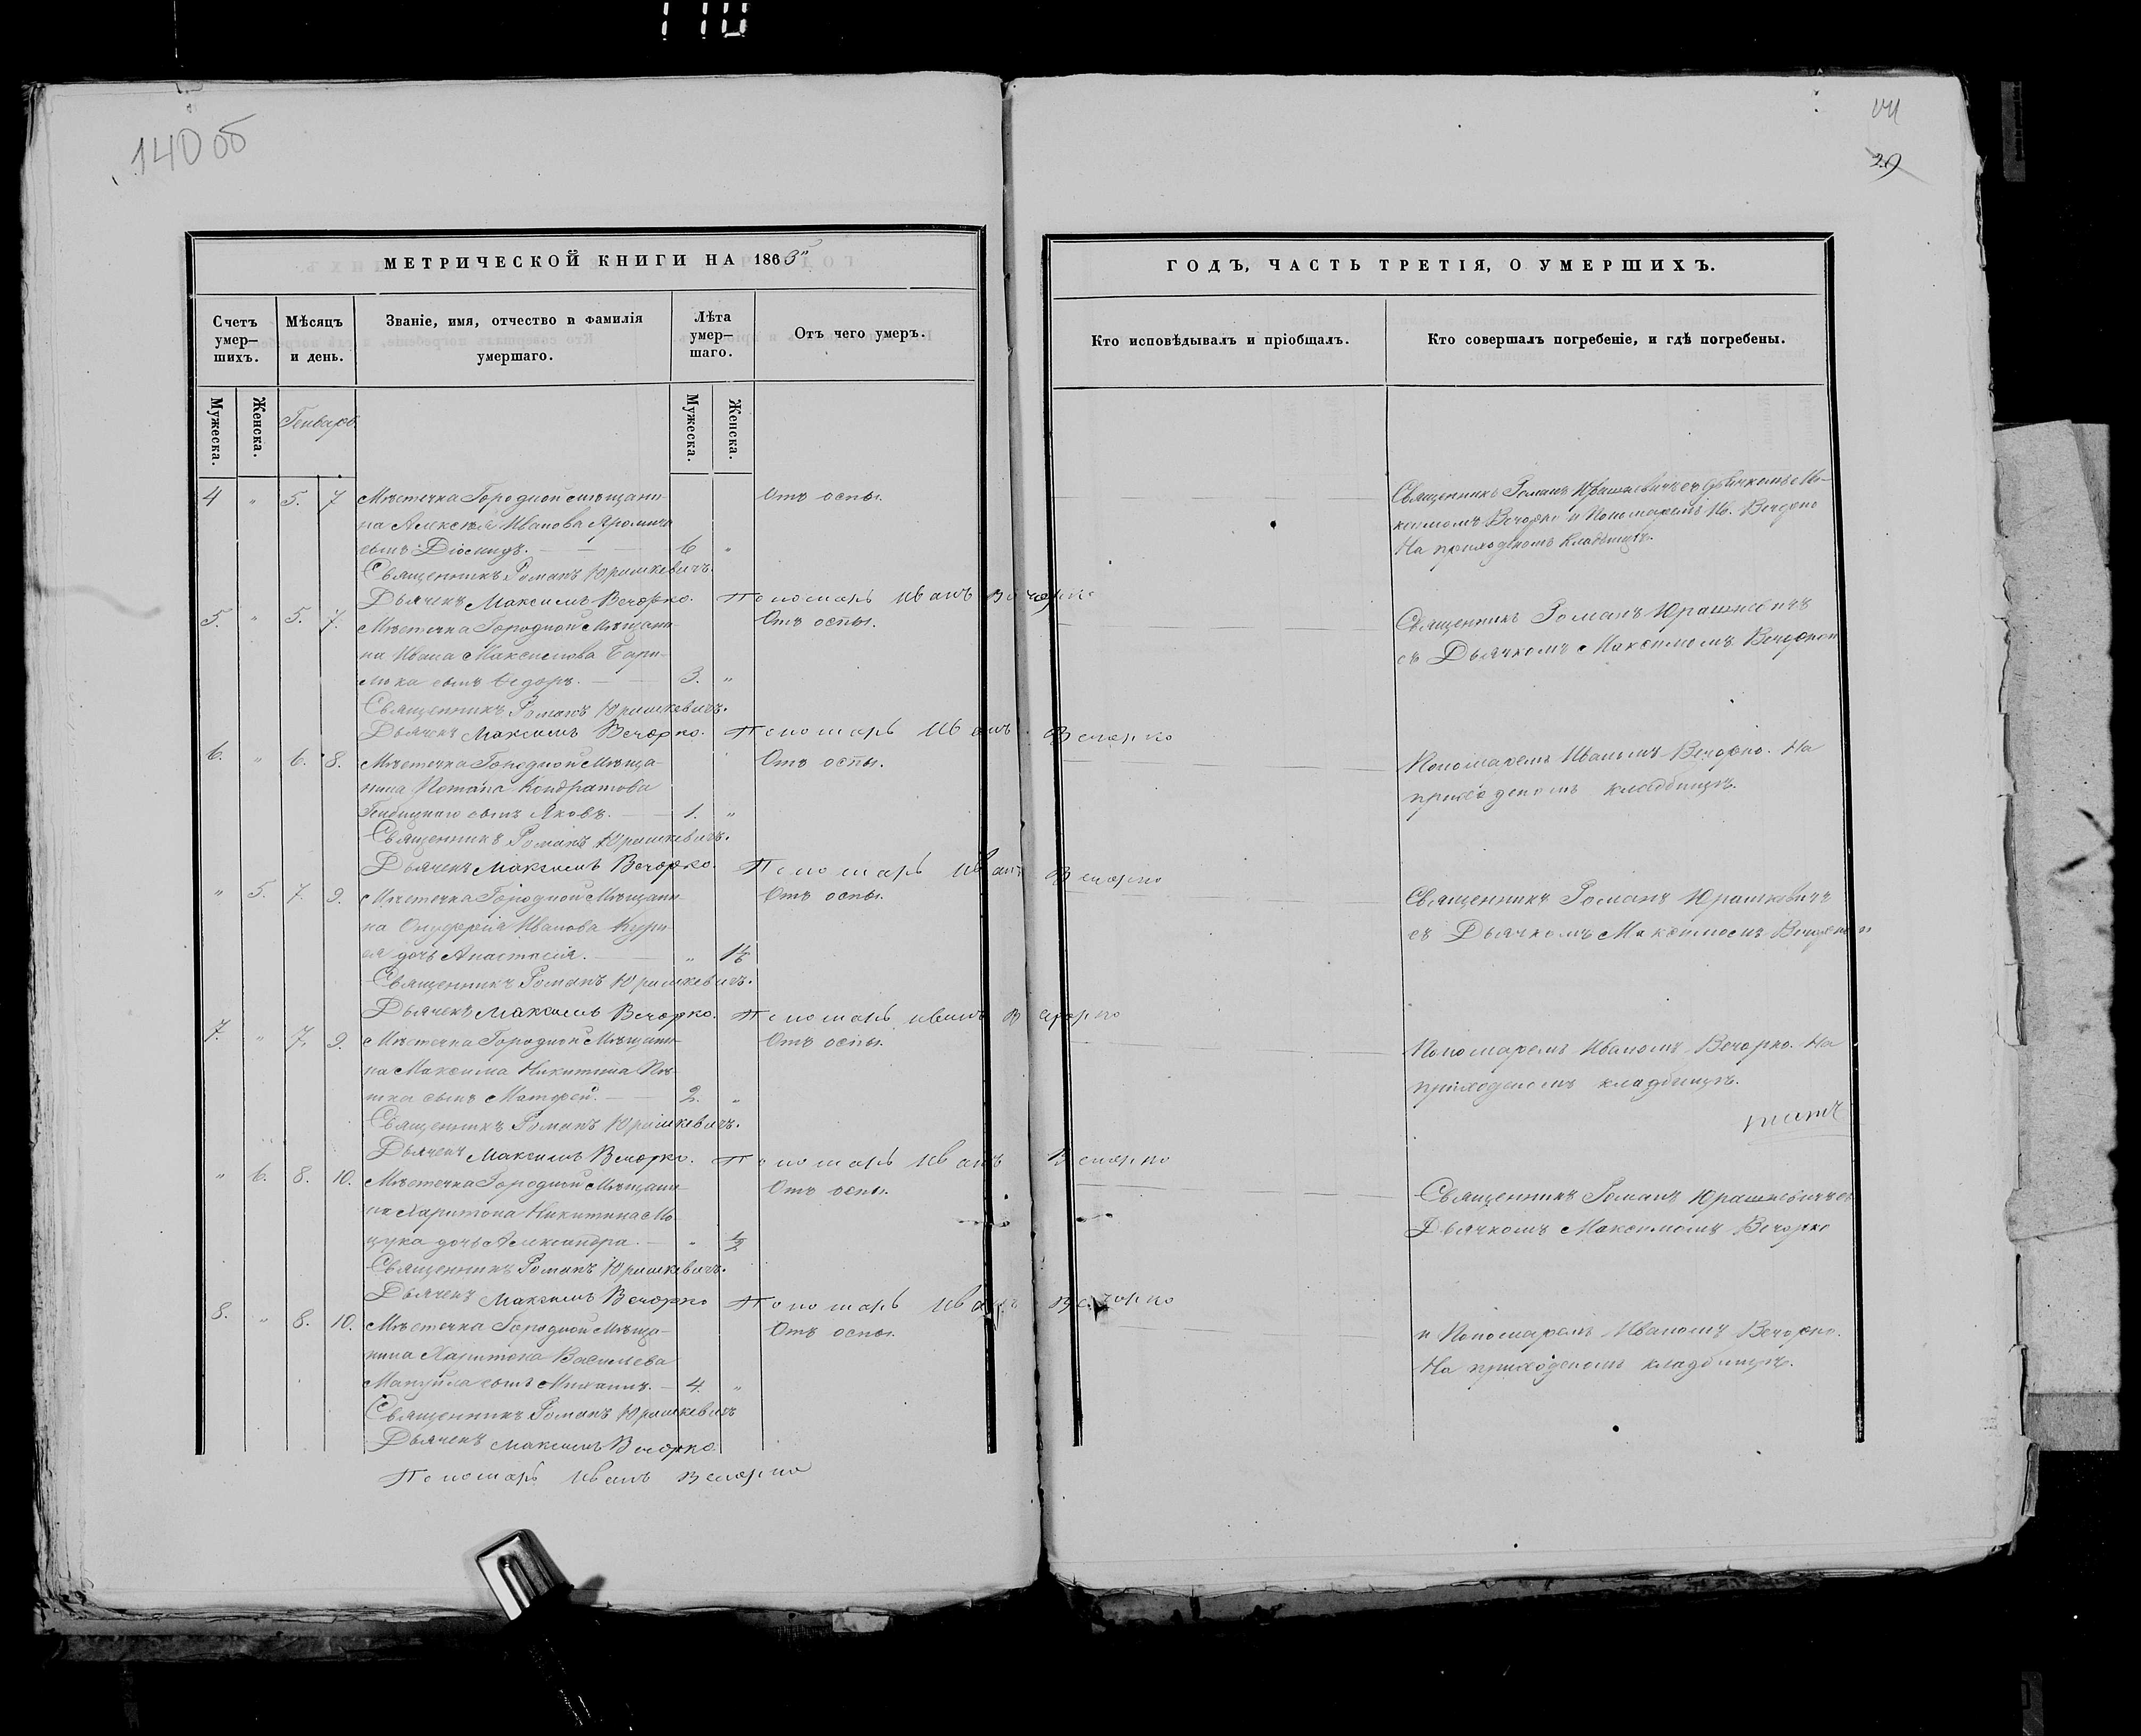 110
140 об
МЕТРИЧЕСКОЙ КНИГИ НА 1863й
Счетъ умер-
шихъ.
Мѣсяцъ
и день.
Званіе, имя, отчество и фамилія
умершаго.
Лѣта
умер-
шаго.
Отъ чего умеръ.
Мужеска.
Женска.
Генварь
Мужеска.
Женска.
4 " 5. 7 Мѣстечка Городной мѣщани- Отъ оспы.
на Алексѣя Иванова
сынъ 6 "
Священникъ Романъ Юрашкевичъ.
Дьячекъ Максимъ Вечорко. Пономарь Иванъ Вечорко
5. " 5. 7. Мѣстечка Городной Мѣщани- Отъ оспы.
на Ивана Максимова
сынъ 3. "
Священникъ Романъ Юрашкевичъ.
Дьячекъ Максимъ Вечорко. Пономарь Иванъ Вечорко
6. " 6. 8. Мѣстечка Городной Мѣща- Отъ оспы.
нина Кондратова
сынъ Яковъ. 1. "
Священникъ Романъ Юрашкевичъ.
Дьячекъ Максимъ Вечорко. Пономарь Иванъ Вечорко
" 5. 7. 9. Мѣстечка Городной Мѣщани- Отъ оспы.
на Онуфрія Иванова
дочь Анастасія. "
Священникъ Романъ Юрашкевичъ.
Дьячекъ Максимъ Вечорко. Пономарь Иванъ Вечорко
7. " 7. 9. Мѣстечка Городной Мѣщани- Отъ оспы.
на Максима Никитина
сынъ Матфей. 2. "
Священникъ Романъ Юрашкевичъ.
Дьячекъ Максимъ Вечорко. Пономарь Иванъ Вечорко
" 6. 8. 10. Мѣстечка Городной Мѣщани- Отъ оспы.
на Харитона Никитина Мо-
цука дочь Александра. " 1/2
Священникъ Романъ Юрашкевичъ.
Дьячекъ Максимъ Вечорко Пономарь Иванъ Вечорко
8. " 8. 10. Мѣстечка Городной Мѣща- Отъ оспы.
нина Харитона Васильева
Мануйла сынъ Михаилъ. 4. "
Священникъ Романъ Юрашкевичъ
Дьячекъ Максимъ Вечорко.
Пономарь Иванъ Вечорко
141
29
ГОДЪ, ЧАСТЬ ТРЕТІЯ, О УМЕРШИХЪ.
Кто исповѣдывалъ и пріобщалъ.
Кто совершалъ погребеніе, и гдѣ погребены.
Священникъ Романъ Юрашкевичъ съ Дьячкомъ Ма-
ксимомъ Вечорко и Пономаремъ Ив. Вечорко
На приходскомъ кладбищѣ.
Священникъ Романъ Юрашкевичъ
съ Дьячкомъ Максимомъ Вечорко и
Пономаремъ Иваномъ Вечорко. На
приходскомъ кладбищѣ.
Священникъ Романъ Юрашкевичъ
съ Дьячкомъ Максимомъ Вечорко и
Пономаремъ Иваномъ Вечорко. На
приходскомъ кладбищѣ.
Священникъ Романъ Юрашкевичъ съ
Дьячкомъ Максимомъ Вечорко
и Пономаремъ Иваномъ Вечорко.
На приходскомъ кладбищѣ.